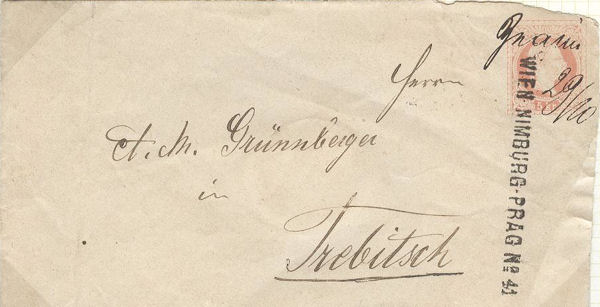 Znaim
29/10
Herrn
A. M. Grünnberger
in
Trebitsch
WIEN-NIMBURG-PRAG No 41